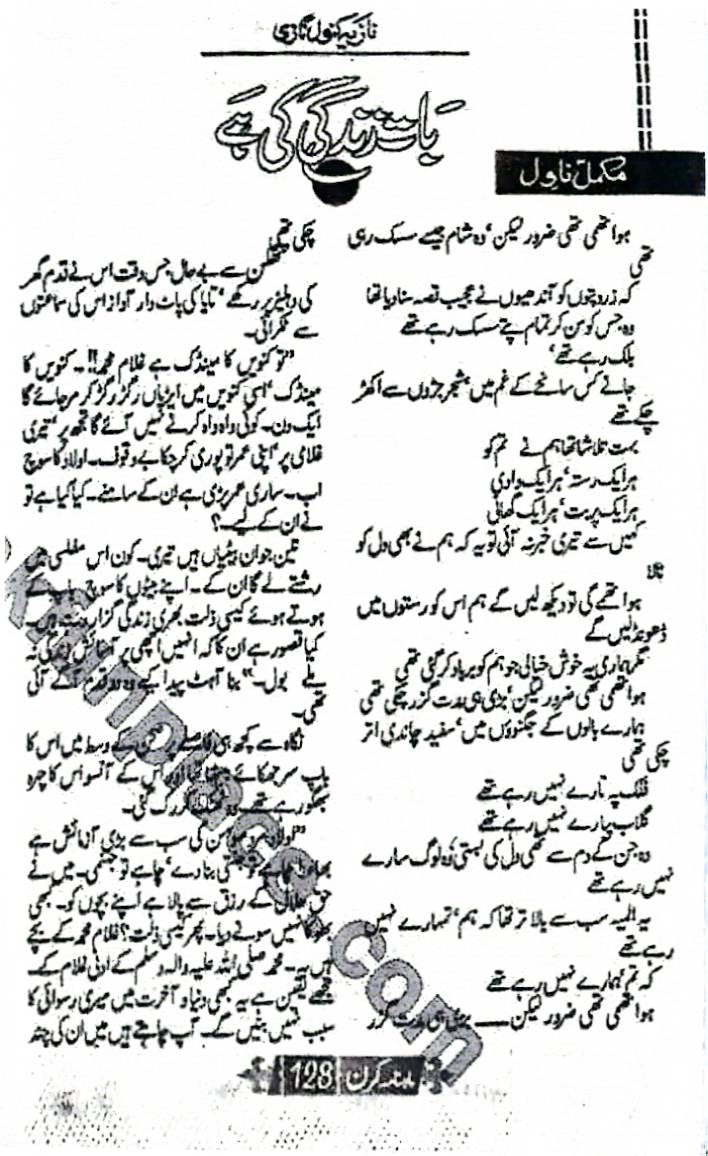 نازیہ کنول نازی
بات زندگی کی ہے
مکمل ناول
ہوا تھی تھی ضرور لیکن ' وہ شام جیسے سسک رہی
تھی
کہ زرد پتوں کو آندھیوں نے عجیب قصہ سنا دیا تھا
وہ جس کو سن کر تمام پتے سسک رہے تھے
بلک رہے تھے '
جانے کس سانحے کے غم میں ' شجر جڑوں سے اکھڑ
چکے تھے
بہت تلاشا تھا ہم نے تم کو
ہر ایک رستہ ' ہر ایک وادی
ہر ایک پربت ' ہر ایک گھاٹی
کہیں سے تیری خبر نہ آئی تو یہ کہ ہم نے بھی دل کو
ٹالا
ہوا تھمے گی تو دیکھ لیں گے ہم اس کو رستوں میں
ڈھونڈ لیں گے
مگر ہماری یہ خوش خیالی جو ہم کو برباد کر گئی تھی
ہوا تھی تھی ضرور لیکن ' بڑی ہی مدت گزر چکی تھی
ہمارے بالوں کے جگنوؤں میں ' سفید چاندی اتر
چکی تھی
فلک پہ تارے نہیں رہے تھے
گلاب پیارے نہیں رہے تھے
وہ جن کے دم سے تھی دل کی بستی ' وہ لوگ سارے
نہیں رہے تھے
یہ المیہ سب سے بالا تر تھا کہ ہم ' تمہارے نہیں
رہے تھے
کہ تم ہمارے نہیں رہے تھے
ہوا تھی تھی ضرور لیکن ــــ بڑی ہی مدت گزر
چکی تھی
تھکن سے بے حال جس وقت اس نے قدم گھر
کی دہلیز پر رکھے ' تایا کی پاٹ دار آواز اس کی سماعتوں
سے ٹکرائی۔
"تو کنویں کا مینڈک ہے غلام محمد!! ۔ کنویں کا
مینڈک ' اسی کنویں میں ایڑیاں رگڑ رگڑ کر مر جائے گا
ایک دن۔ کوئی واہ واہ کرنے نہیں آئے گا تجھ پر ' تیری
غلامی پر ' اپنی عمر تو پوری کر چکا بے وقوف۔ اولاد کا سوچ
اب۔ ساری عمر پڑی ہے ان کے سامنے۔ کیا کیا ہے تو
نے ان کے لیے۔ ؟
تین جوان بیٹیاں ہیں تیری۔ کون اس مفلسی میں
رشتے لے گا ان کے۔ اپنے بیٹوں کا سوچ باپ کے
ہوتے ہوئے کیسی ذلت بھری زندگی گزار رہے ہیں۔
کیا قصور ہے ان کا کہ انہیں اچھی پر آسائش زندگی نہ
ملے بول۔" بنا آہٹ پیدا کیے وہ دو قدم آگے آئی
تھی۔
نگاہ سے کچھ ہی فاصلے پر صحن کے وسط میں اس کا
باپ سر جھکائے بیٹھا تھا اور اس کے آنسو اس کا چہرہ
بھگو رہے تھے۔ وہ ٹھٹک کر رک گئی۔
"اولاد مومن کی سب سے بڑی آزمائش ہے
بھائی! چاہے تو جنتی بنا دے ' چاہے تو جہنمی۔ میں نے
حق حلال کے رزق سے پالا ہے اپنے بچوں کو۔ کبھی
بھوکا نہیں سونے دیا۔ پھر کیسی ذلت؟ غلام محمد کے بچے
ہیں یہ۔ محمد صلی اللہ علیہ والہ وسلم کے ادنیٰ غلام کے۔
مجھے یقین ہے یہ کبھی دنیا و آخرت میں میری رسوائی کا
سبب نہیں بنیں گے۔ آپ چاہتے ہیں میں ان کی چند
ماہنامہ کرن 128